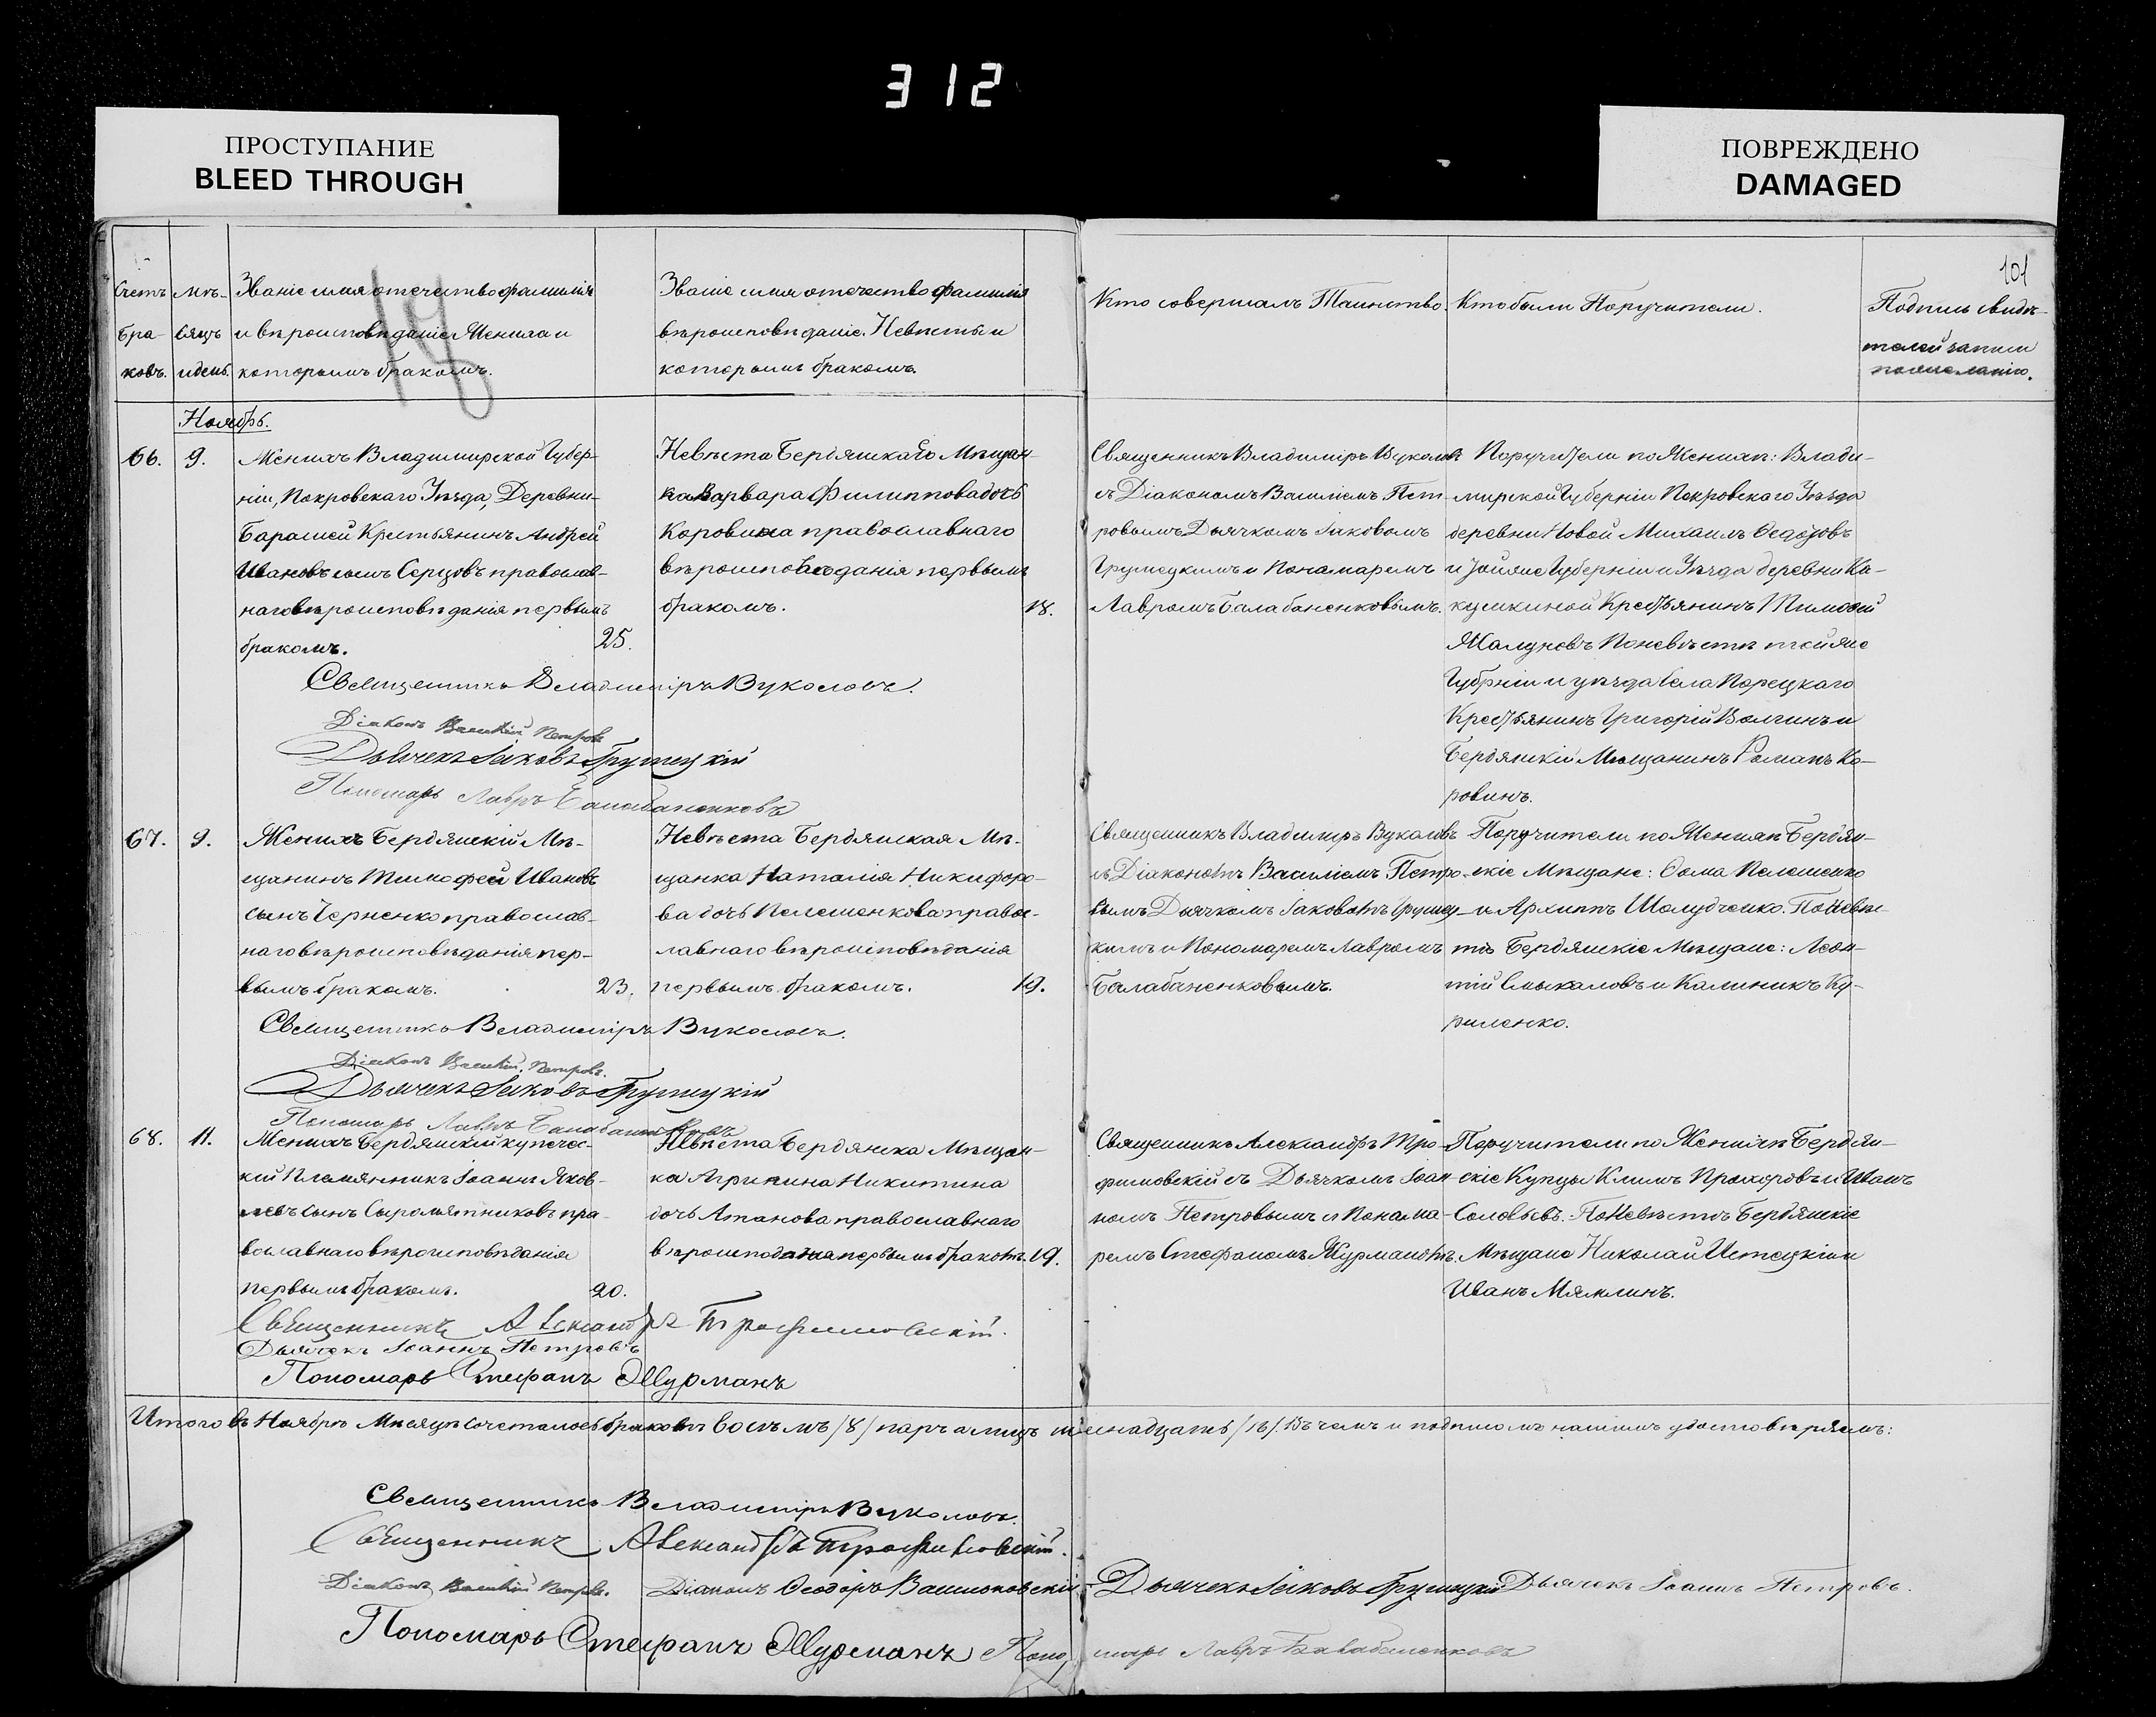 312
ПРОСТУПАНИЕ
BLEED THROUGH
ПОВРЕЖДЕНО
DAMAGED
101
Счетъ бра- ковъ.
Мѣ- сяцъ и день.
Званіе имя отечество фамилія
и вѣроисповѣданіе Жениха и
которымъ бракомъ.
Званіе имя отечество фамилія
вѣроисповѣданіе Невѣсты и
которымъ бракомъ.
Кто совершалъ Таинство.
Кто были Поручители.
Подпись свидѣ-
телей записи
по желанію.
Ноябрь.
66. 9.
Женихъ Владимирской Губер-
ніи, Покровскаго Уѣзда, Деревни
Крестьянинъ Андрей
Ивановъ сынъ православ-
наго вѣроисповѣданія первымъ
бракомъ. 25.
Невѣста Бердянскаго Мѣщан-
ка Варвара Филиппова дочь
Коровина православнаго
вѣроисповѣданія первымъ
бракомъ. 18.
Священникъ Владиміръ Вуколовъ
съ Діакономъ Василіемъ Пет-
ровымъ Дьячкомъ Іаковомъ
Грушецкимъ и Понамаремъ
Лавромъ Балабаненковымъ.
Поручители по Женихѣ: Влади-
мирской Губерніи Покровскаго Уѣзда
деревни Новой Михаилъ Ѳедотовъ
и тойже Губерніи и Уѣзда деревни Ка-
кушкиной Крестьянинъ Тимоѳей
Жалуновъ По невѣстѣ тойже
Губрніи и уѣзда села Порецкаго
Крестьянинъ Григорій Волгинъ и
Бердянскій Мѣщанинъ Романъ Ко-
ровинъ.
Священникъ Владиміръ Вуколовъ.
Діаконъ Василій Петровъ
Дьячекъ Іаковъ Грушецкій
Пономарь Лавръ Балабаненковъ
67. 9.
Женихъ Бердянскій Мѣ-
щанинъ Тимофей Ивановъ
сынъ Черненко православ-
наго вѣроисповѣданія пер-
вымъ бракомъ. 23.
Невѣста Бердянская Мѣ-
щанка Наталія Никифоро-
ва дочь Пелешенкова правос-
лавнаго вѣроисповѣданія
первымъ бракомъ. 19.
Священникъ Владиміръ Вуколовъ
съ Діакономъ Василіемъ Петро-
вымъ Дьячкомъ Іаковомъ Грушец-
кимъ и Пономаремъ Лавромъ
Балабаненковымъ.
Поручители по Женихѣ Бердян-
скіе Мѣщане: Ѳома Пелешенко
и Архипъ Шолудченко. По Невѣс-
тѣ Бердянскіе Мѣщане: Леон-
тій Смыкаловъ и Калиникъ Ку-
риленко.
Священникъ Владиміръ Вуколовъ.
Діаконъ Василій Петровъ.
Дьячекъ Іаковъ Грушецкій
Пономарь Лавръ Балабаненковъ
68. 11.
Женихъ Бердянскій купечес-
кій Племянникъ Іоаннъ Яков-
левъ сынъ Сыромятниковъ пра-
вославнаго вѣроисповѣданія
первымъ бракомъ. 20.
Невѣста Бердянска Мѣщан-
ка Агрипина Никитина
дочь Атанова православнаго
первымъ бракомъ. 19.
Священникъ Александръ Тро-
фимовскій съ Дьячкомъ Іоан-
номъ Петровымъ и Понама-
ремъ Стефаномъ Журманомъ.
Поручители по Женихѣ Бердян-
скіе Купцы Климъ Прохоровъ и Иванъ
Соловьевъ. По Невѣстѣ Бердянскіе
Мѣщане Николай Истецкій и
Иванъ Мяклинъ.
Священникъ Александръ Трофимовскій.
Дьячекъ Іоаннъ Петровъ
Пономарь Стефанъ Журманъ
Итого въ Ноябрѣ Мѣсяцѣ сочеталось браковъ восѣмъ /8/ паръ а лицъ шеснадцать /16/. Въ чемъ и подписомъ нашимъ удостовѣряемъ:
Священникъ Владиміръ Вуколовъ.
Священникъ Александръ Трофимовскій.
Діаконъ Василій Петровъ. Діаконъ Ѳеодоръ Дьячекъ Іаковъ Грушецкій Дьячекъ Іоаннъ Петровъ.
Пономарь Стефанъ Журманъ Пономарь Лавръ Балабаненковъ